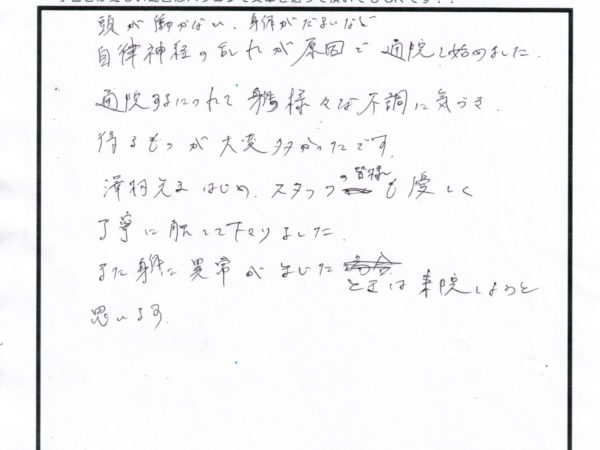 頭が働かない、身体がだるいなど
自律神経の乱れが原因で通院し始めました。
通院するにつれて身体の様々な不調に気づき、
得るものが大変多かったです。
澤村先生はじめ、スタッフの皆様も優しく
丁寧に施して下さりました。
また身体に異常が生じた
ときは来院しようと
思います。